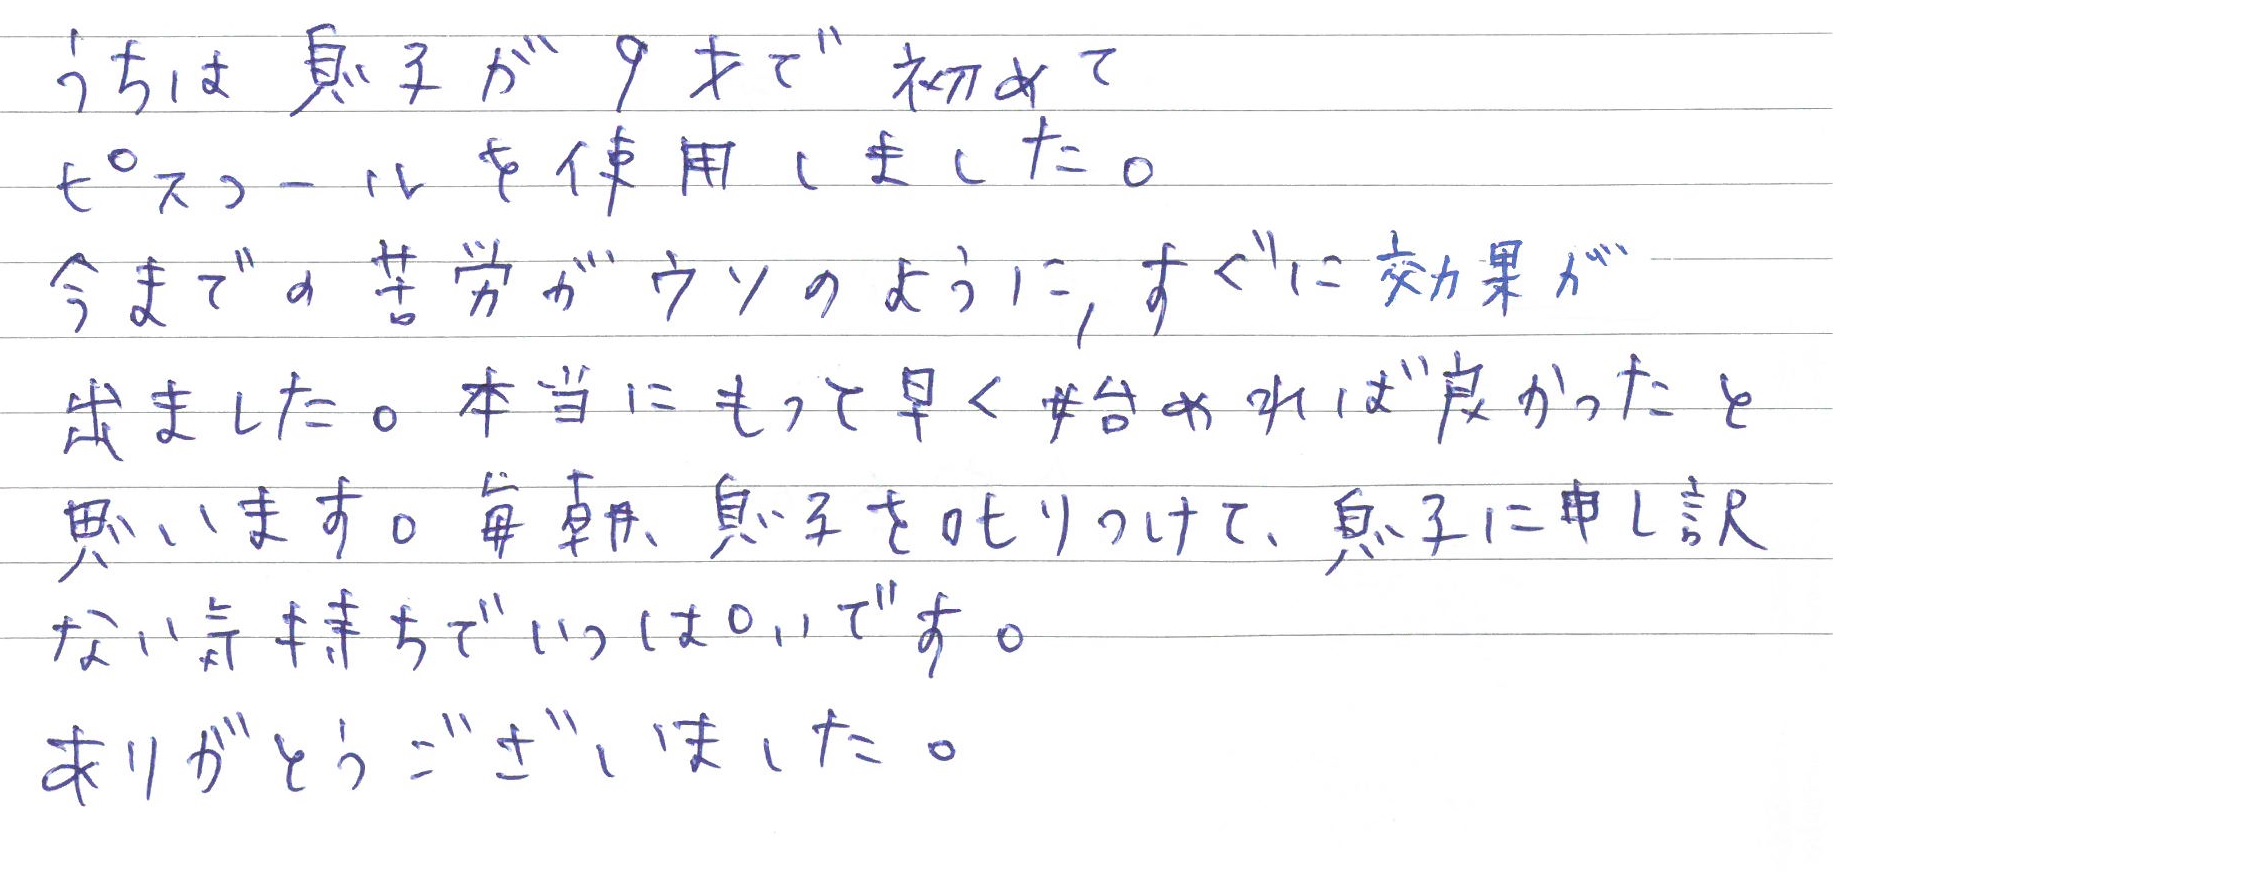 うちは息子が9才で初めて
ピスコールを使用しました。
今までの苦労がウソのように,すぐに効果が
出ました。本当にもって早く始めれば良かったと
思います。毎朝、息子を叱りつけて、息子に申し訳
ない気持ちでいっぱいです。
ありがとうございました。